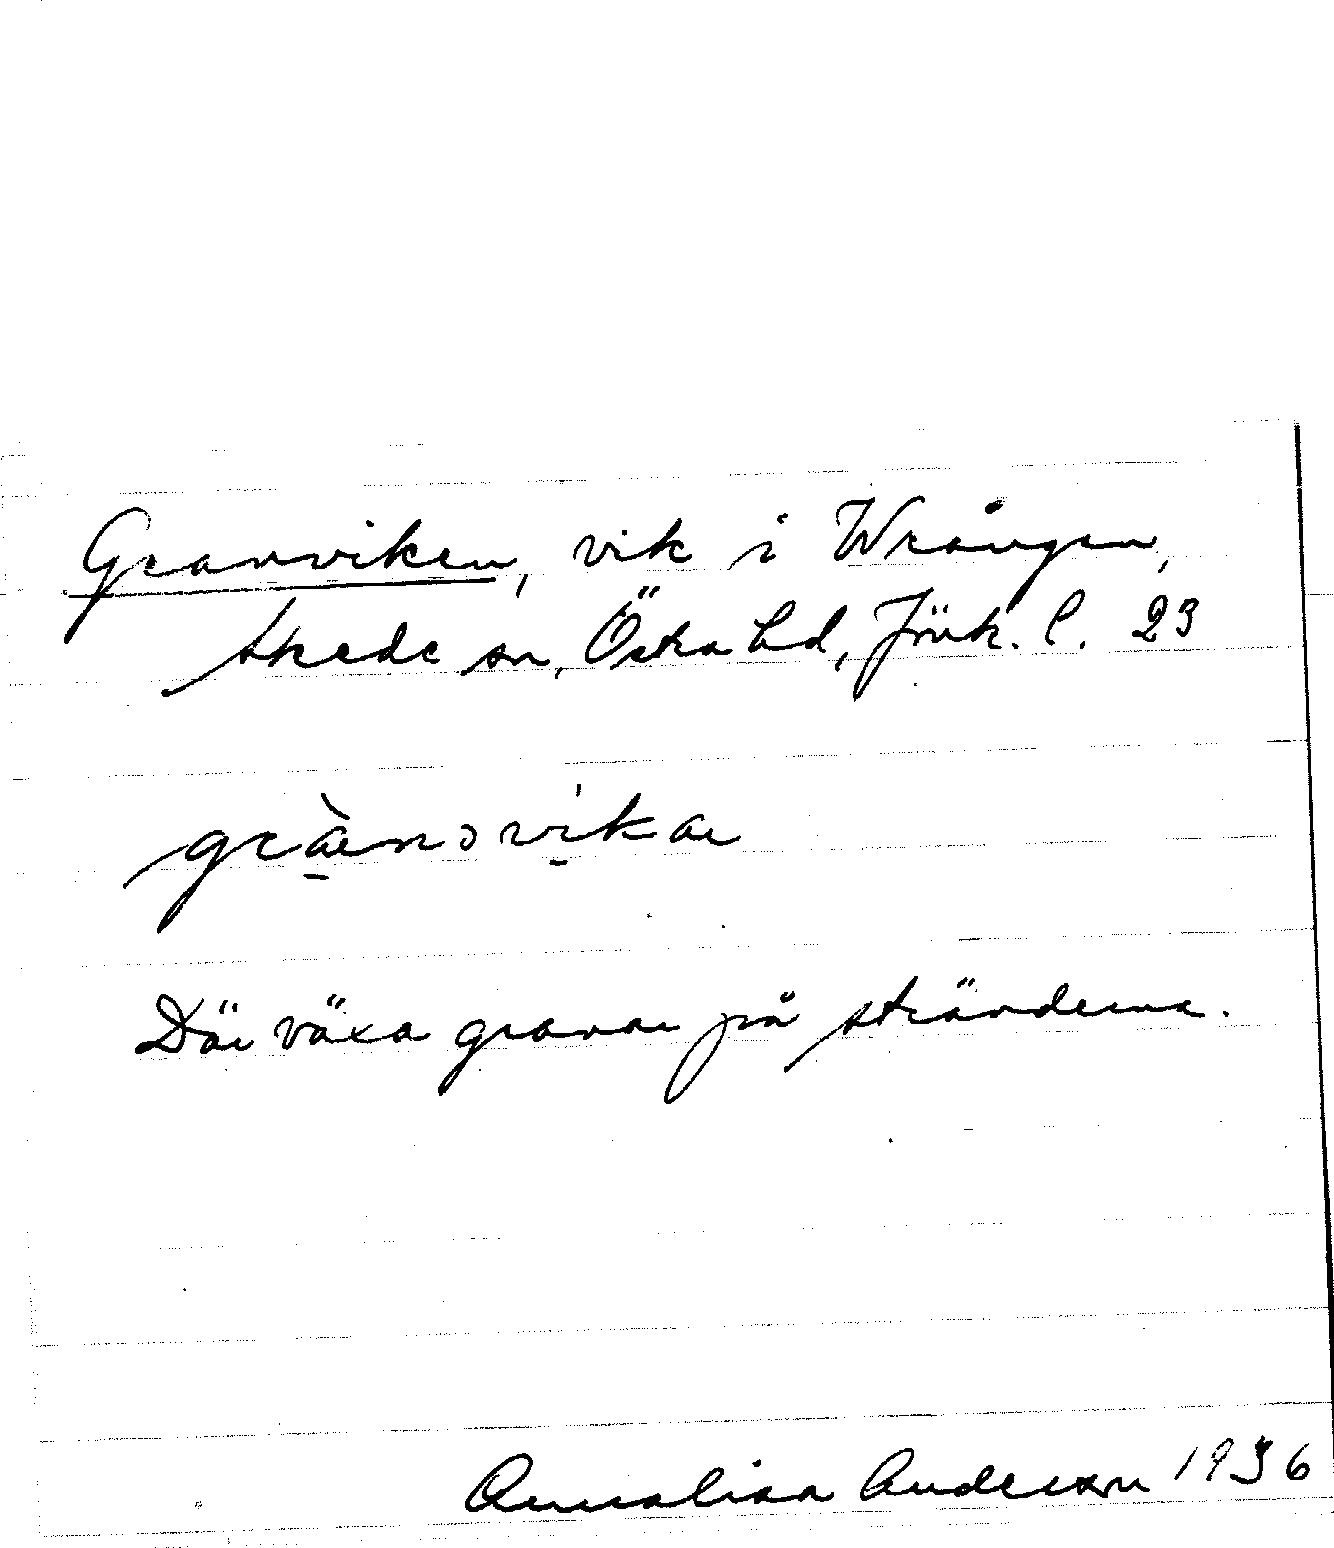 Granviken, vik i Wrången,
Skede sn, Östra hd, Jönk. l. 23
Där växa granar på stränderna.
Annalisa Anderson 1936